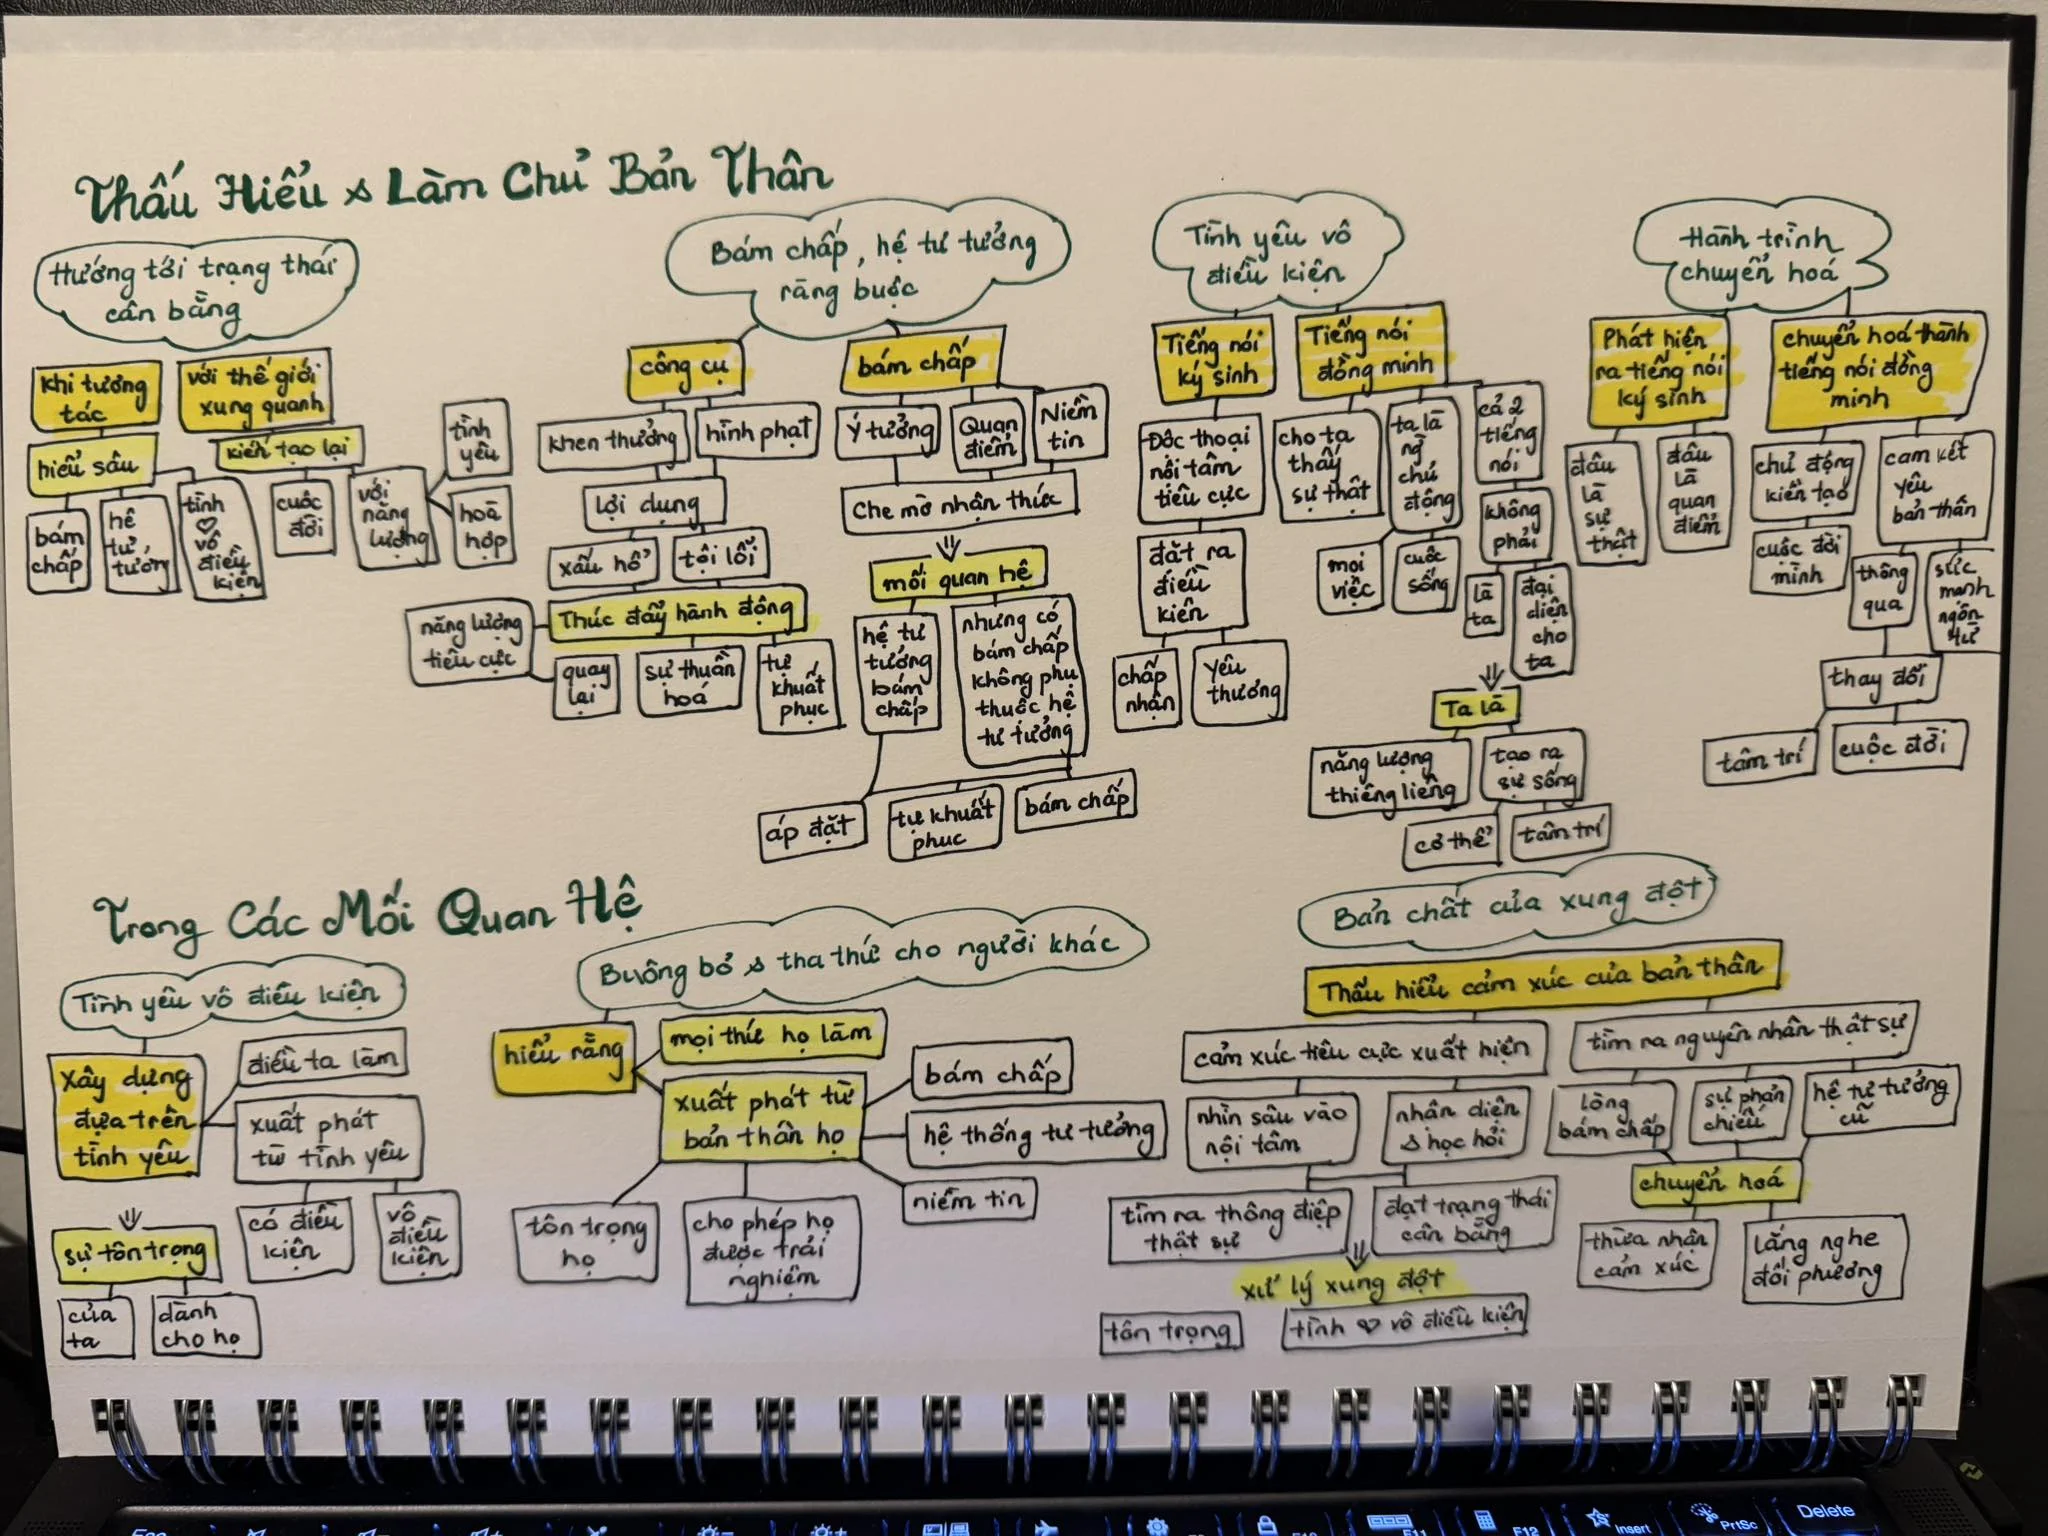 Thấu Hiểu & Làm Chủ Bản Thân
Hướng tới trạng thái
cân bằng
khi tương
tác
hiểu sâu
bám
chấp
hệ
tư
tưởng
tình
♡
vô
điều
kiện
với thế giới
xung quanh
kiến tạo lại
cuộc
đời
với
năng
lượng
tình
yêu
hoà
hợp
Bám chấp, hệ tư tưởng
ràng buộc
công cụ
khen thưởng
hình phạt
lợi dụng
xấu hổ
tội lỗi
Thúc đẩy hành động
năng lượng
tiêu cực
quay
lại
sự thuần
hoá
tự
khuất
phục
bám chấp
Ý tưởng
Quan
điểm
Niềm
tin
Che mờ nhận thức
mối quan hệ
hệ tư
tưởng
bám
chấp
nhưng có
bám chấp
không phụ
thuộc hệ
tư tưởng
áp đặt
tự khuất
phục
bám chấp
Tình yêu vô
điều kiện
Tiếng nói
ký sinh
Độc thoại
nội tâm
tiêu cực
đặt ra
điều
kiện
chấp
nhận
yêu
thương
Tiếng nói
đồng minh
cho ta
thấy
sự thật
ta là
ng̀
chủ
động
mọi
việc
cuộc
sống
cả 2
tiếng
nói
không
phải
là
ta
đại
diện
cho
ta
Ta là
năng lượng
thiêng liêng
tạo ra
sự sống
cơ thể
tâm trí
Hành trình
chuyển hoá
Phát hiện
ra tiếng nói
ký sinh
đâu
là
sự
thật
đâu
là
quan
điểm
chuyển hoá thành
tiếng nói đồng
minh
chủ động
kiến tạo
cuộc đời
mình
cam kết
yêu
bản thân
thông
qua
sức
mạnh
ngôn
từ
thay đổi
tâm trí
cuộc đời
Trong Các Mối Quan Hệ
Tình yêu vô điều kiện
xây dựng
dựa trên
tình yêu
điều ta làm
xuất phát
từ tình yêu
có điều
kiện
vô
điều
kiện
sự tôn trọng
của
ta
dành
cho họ
Buông bỏ & tha thứ cho người khác
hiểu rằng
mọi thứ họ làm
xuất phát từ
bản thân họ
bám chấp
hệ thống tư tưởng
niềm tin
tôn trọng
họ
cho phép họ
được trải
nghiệm
Bản chất của xung đột
Thấu hiểu cảm xúc của bản thân
cảm xúc tiêu cực xuất hiện
nhìn sâu vào
nội tâm
nhận diện
& học hỏi
tìm ra thông điệp
thật sự
đạt trạng thái
cân bằng
xử lý xung đột
tôn trọng
tình ♡ vô điều kiện
tìm ra nguyên nhân thật sự
lòng
bám chấp
sự phản
chiếu
hệ tư tưởng
cũ
chuyển hoá
thừa nhận
cảm xúc
lắng nghe
đối phương
F11
F12
Insert
PrtSc
Delete